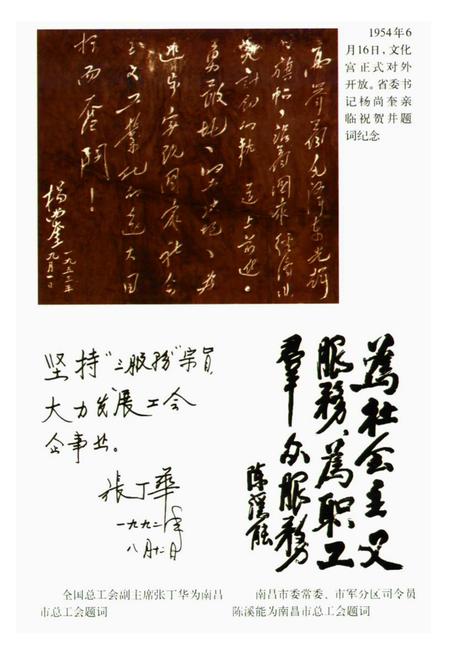 1954年6
月16日，文化
宫正式对外
开放。省委书
记杨尚奎亲
临祝贺并题
词纪念
高举着毛泽东光辉
的旗帜，沿着国家经济建
设计划的轨道上前进。
勇敢地、坚决地、为
逐步实现国家社会
主义工业化的伟大目
标而奋斗！
杨尚奎
九月一日
坚持“三服务”宗旨
大力发展工会
企事业。
張丁華
一九九二年
八月十二日
為社会主义
服務、為职工
羣众服務
陈溪能
全国总工会副主席张丁华为南昌
市总工会题词
南昌市委常委、市军分区司令员
陈溪能为南昌市总工会题词